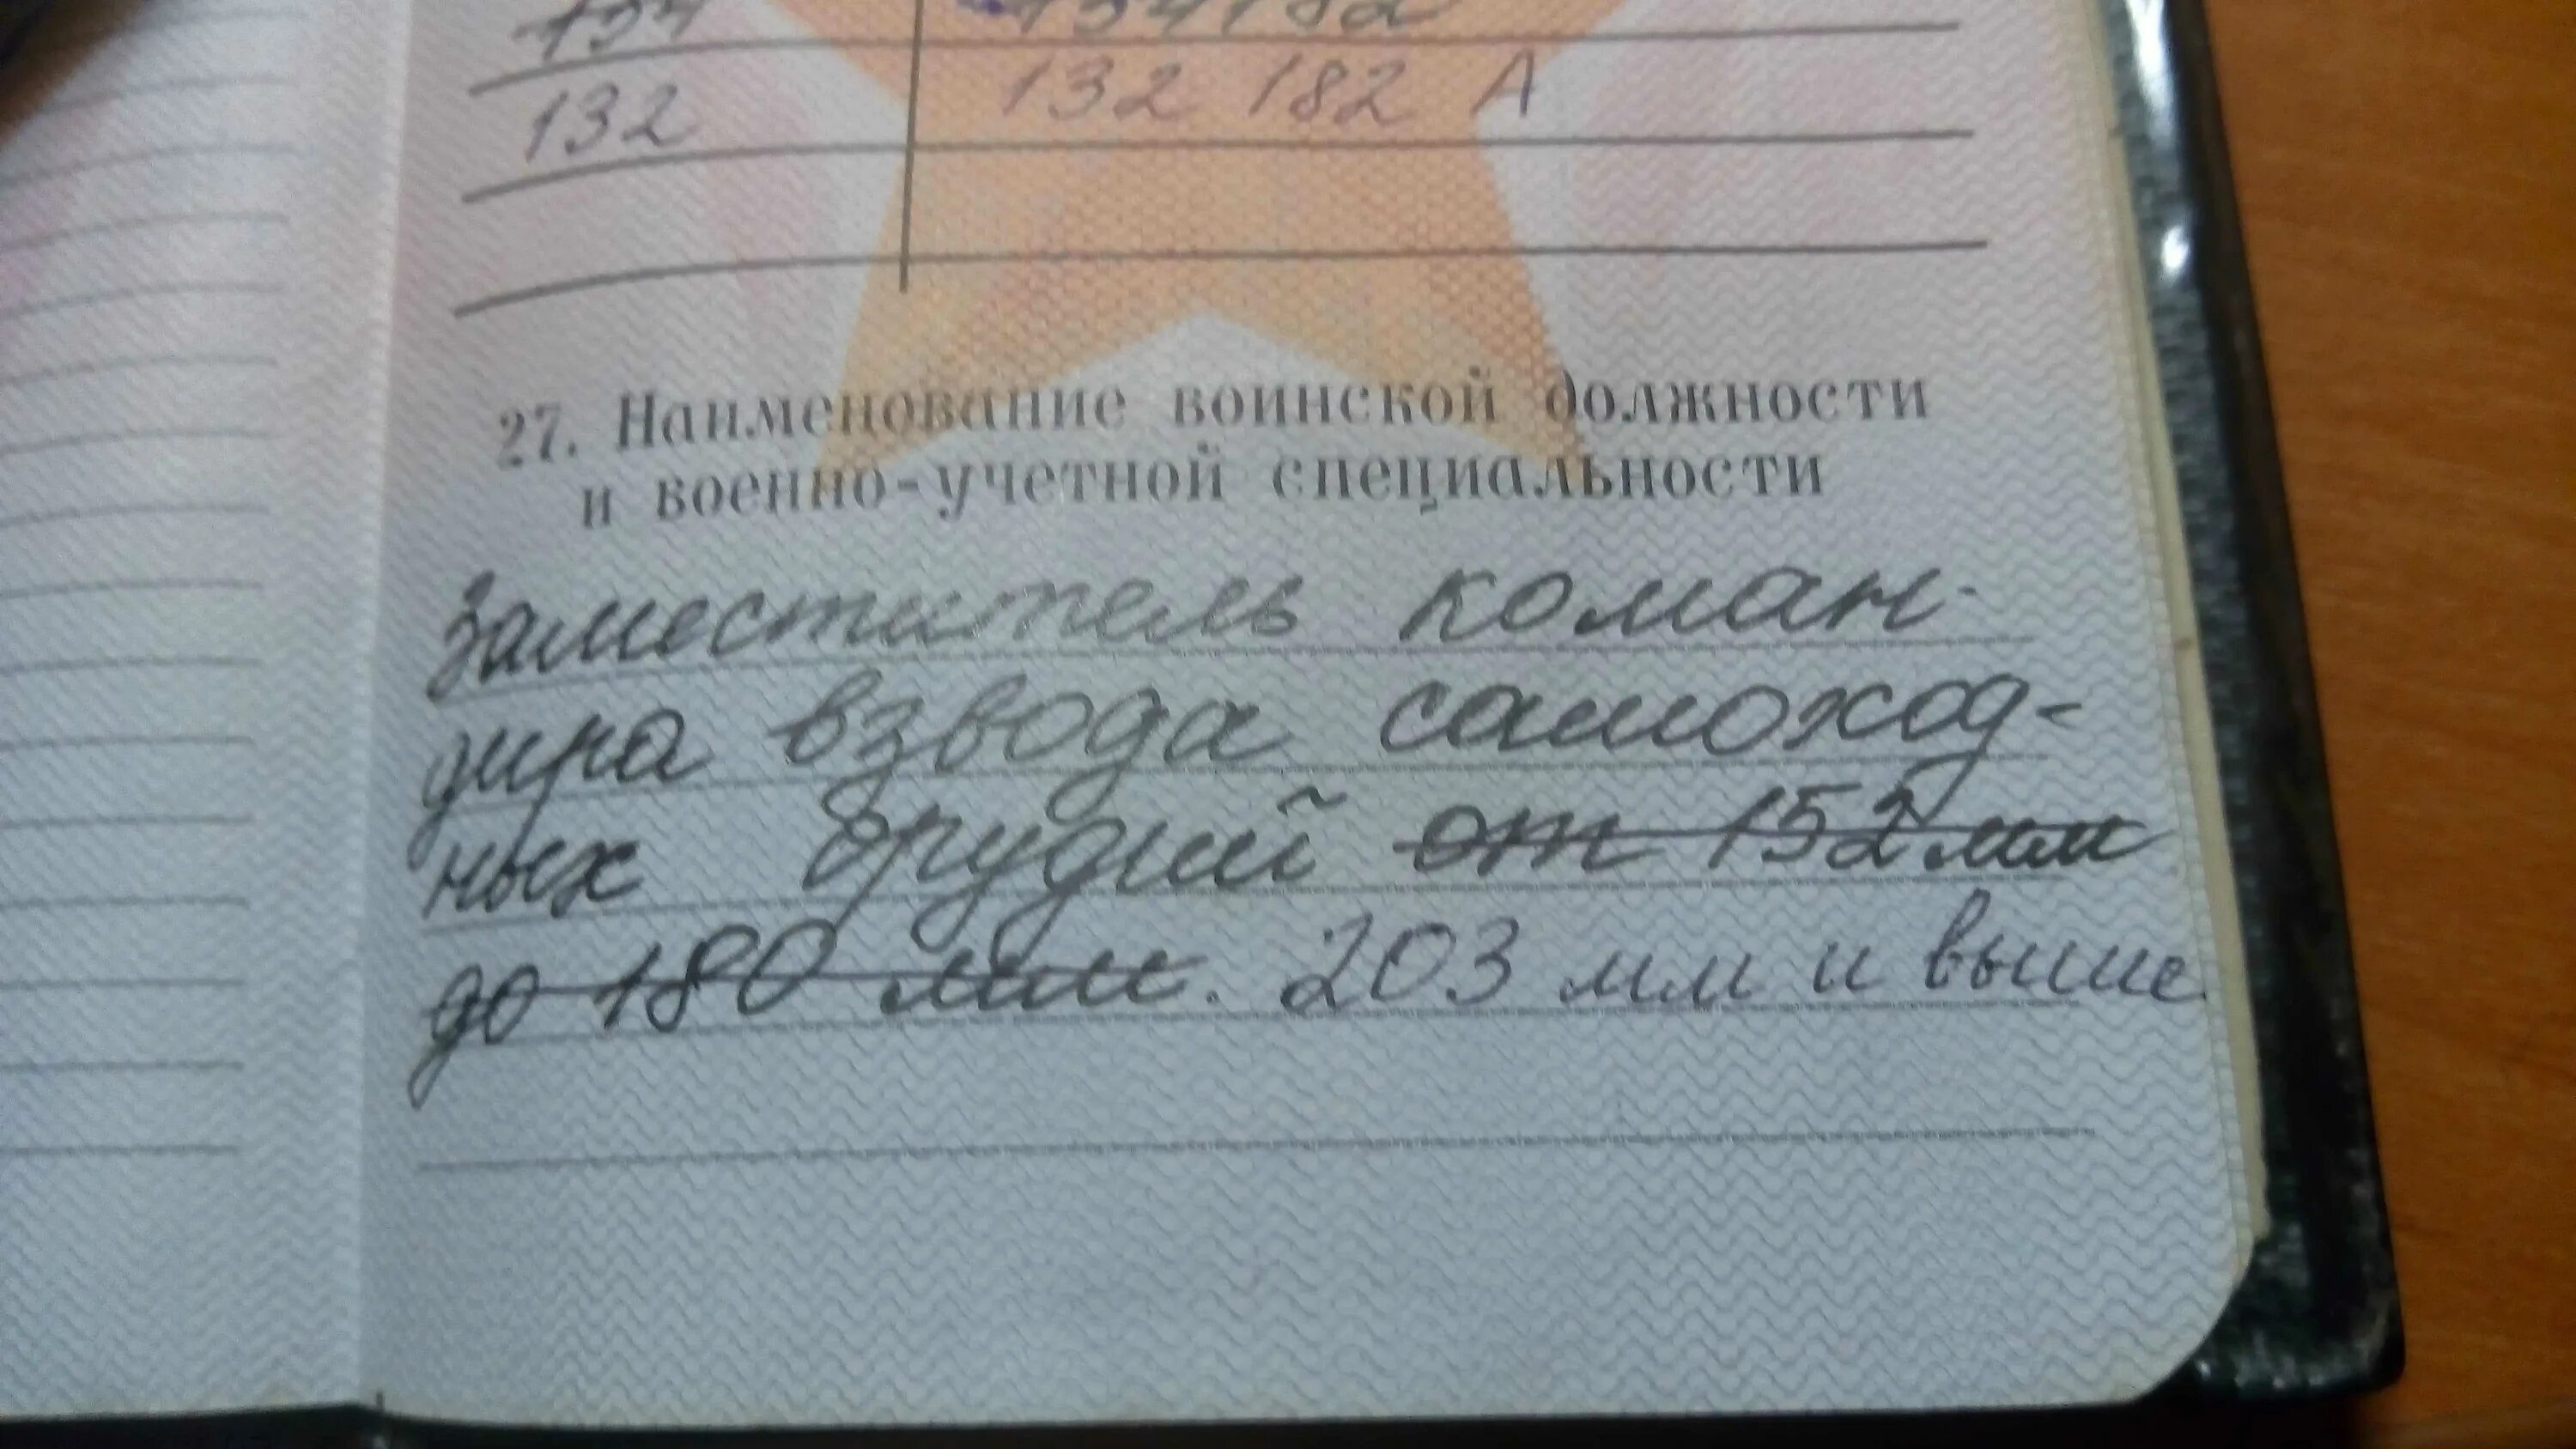 134 134182
132 132 182 А
27. Наименование воинской должности
и военно-учетной специальности
Заместитель коман-
дира взвода самоход-
ных орудий от 152 мм
до 180 мм. 203 мм и выше